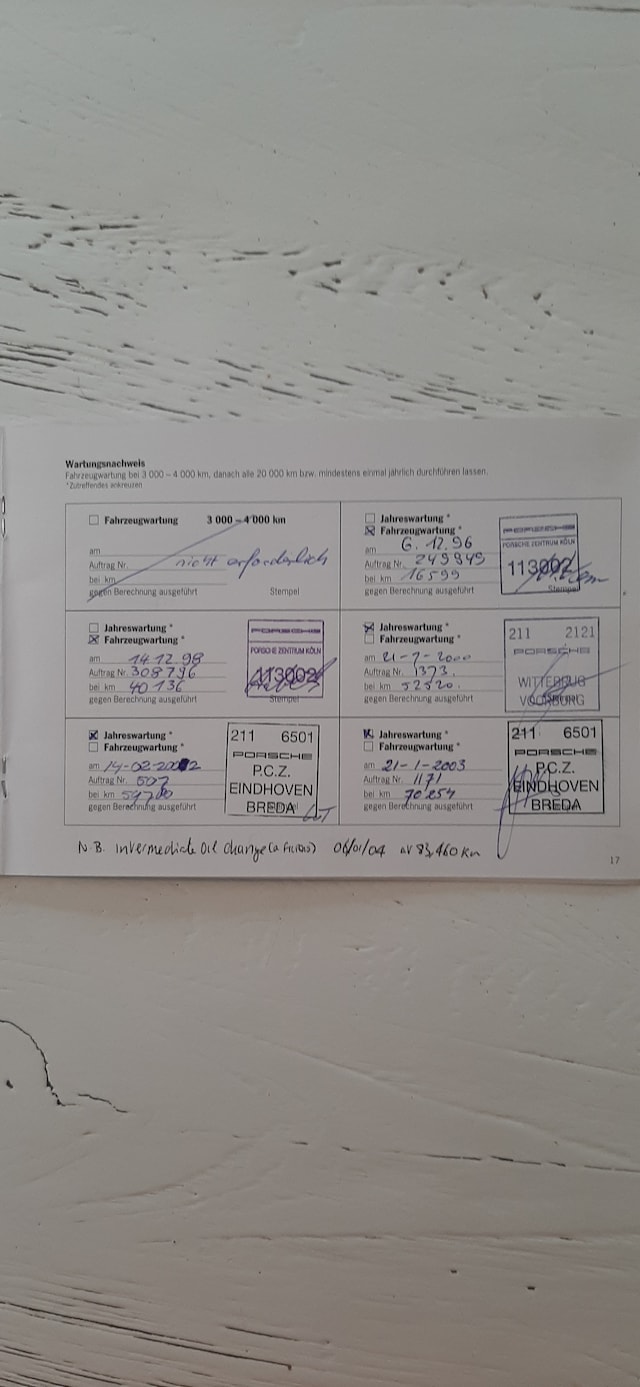 Wartungsnachweis
Fahrzeugwartung bei 3 000 – 4 000 km, danach alle 20 000 km bzw. mindestens einmal jährlich durchführen lassen.
*Zutreffendes ankreuzen
Fahrzeugwartung 3 000 – 4 000 km
am
Auftrag Nr. nicht erforderlich
bei km
gegen Berechnung ausgeführt Stempel
Jahreswartung *
Fahrzeugwartung *
am 6. 12. 96
Auftrag Nr. 249949
bei km 16599
gegen Berechnung ausgeführt Stempel
PORSCHE
PORSCHE ZENTRUM KÖLN
113002
Jahreswartung *
Fahrzeugwartung *
am 14.12.98
Auftrag Nr. 308796
bei km 40136
gegen Berechnung ausgeführt Stempel
PORSCHE
PORSCHE ZENTRUM KÖLN
113002
Jahreswartung *
Fahrzeugwartung *
am 21-7-2000
Auftrag Nr. 1373.
bei km 52520.
gegen Berechnung ausgeführt
211 2121
PORSCHE
WITTEBRUG
VOORBURG
Jahreswartung *
Fahrzeugwartung *
am 14-02-2002
Auftrag Nr. 507
bei km
gegen Berechnung ausgeführt
211 6501
PORSCHE
P.C.Z.
EINDHOVEN
BREDA
Jahreswartung *
Fahrzeugwartung *
am 21-1-2003
Auftrag Nr. 1171
bei km 70254
gegen Berechnung ausgeführt
211 6501
PORSCHE
P.C.Z.
EINDHOVEN
BREDA
N.B. intermediate oil change 06/01/04 km
17